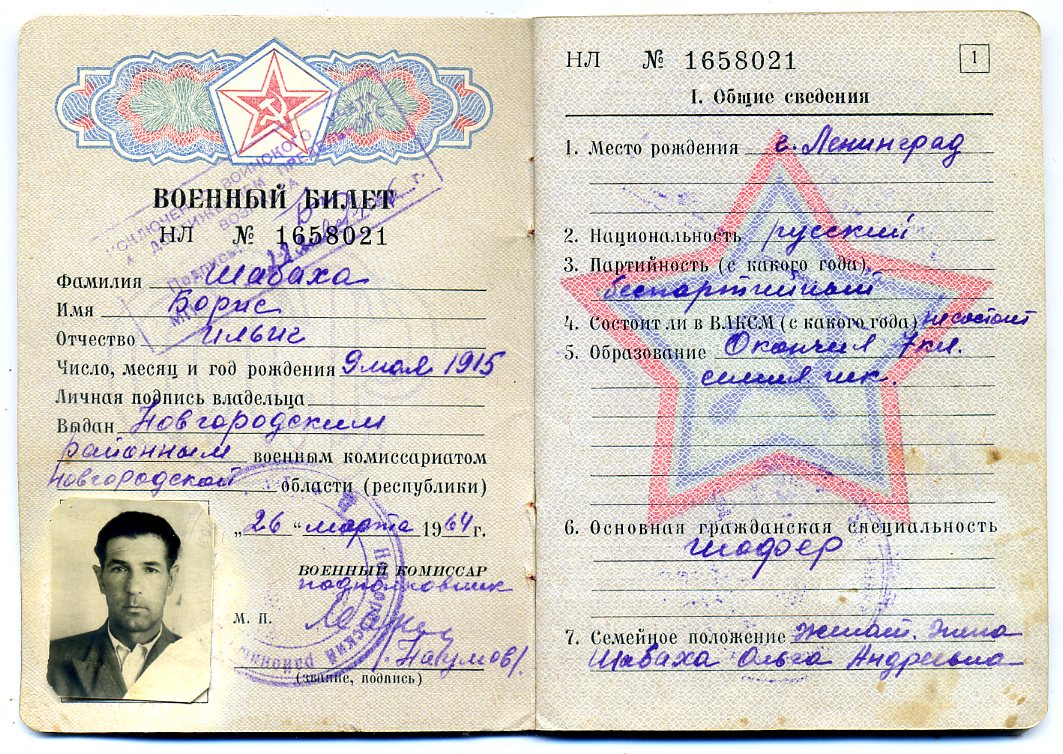 ВОЕННЫЙ БИЛЕТ
НЛ № 1658021
ИСКЛЮЧЕН ВОИНСКОГО УЧЕТА
ВОЗРАСТА
Фамилия Шабаха
Имя Борис
Отчество Ильич
Число, месяц и год рождения 9 мая 1915
Личная подпись владельца
Выдан Новгородским
районным военным комиссариатом
Новгородской области (республики)
„26“ марта 1964 г.
ВОЕННЫЙ КОМИССАР
подполковник
М. П.
/Наумов/
(звание, подпись)
НЛ № 1658021
1
I. Общие сведения
1. Место рождения г. Ленинград
2. Национальность русский
3. Партийность (с какого года)
беспартийный
4. Состоит ли в ВЛКСМ (с какого года) не состоит
5. Образование Окончил 7 кл.
6. Основная гражданская специальность
шофер
7. Семейное положение Женат. Жена
Шабаха Ольга Андреевна